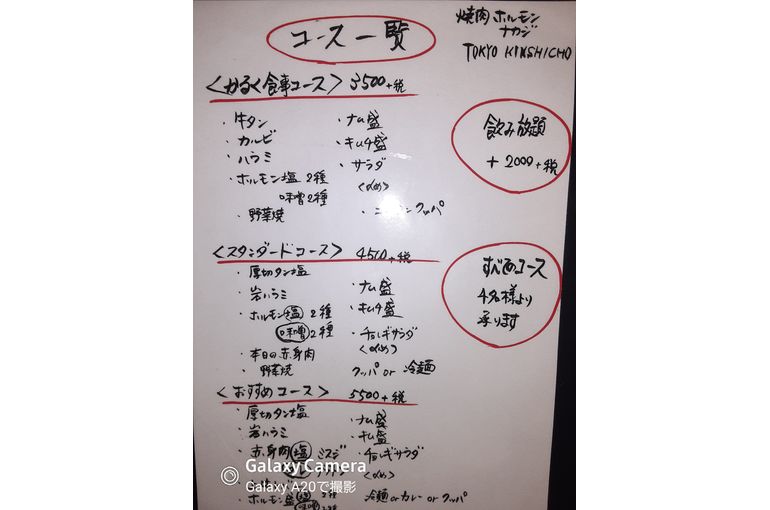 コース一覧
焼肉ホルモン
ナカジ
TOKYO KINSHICHO
<かるく食事コース> 3500+税
・牛タン
・カルビ
・ハラミ
・ホルモン塩 2種
味噌 2種
・野菜焼
・ナムル盛
・キムチ盛
・サラダ
<〆め>
クッパ
飲み放題
+2000+税
<スタンダードコース> 4500+税
・厚切タン塩
・岩ハラミ
・ホルモン塩 2種
味噌 2種
・本日の赤身肉
・野菜焼
・ナムル盛
・キムチ盛
・チョレギサラダ
<〆め>
クッパ or 冷麺
すべてのコース
4名様より
承ります
<おすすめコース> 5500+税
・厚切タン塩
・岩ハラミ
・赤身肉 塩 ミスジ
・ホルモン盛 塩 2種
味噌 2種
・ナムル盛
・キムチ盛
・チョレギサラダ
<〆め>
冷麺 or カレー or クッパ
Galaxy Camera
Galaxy A20で撮影